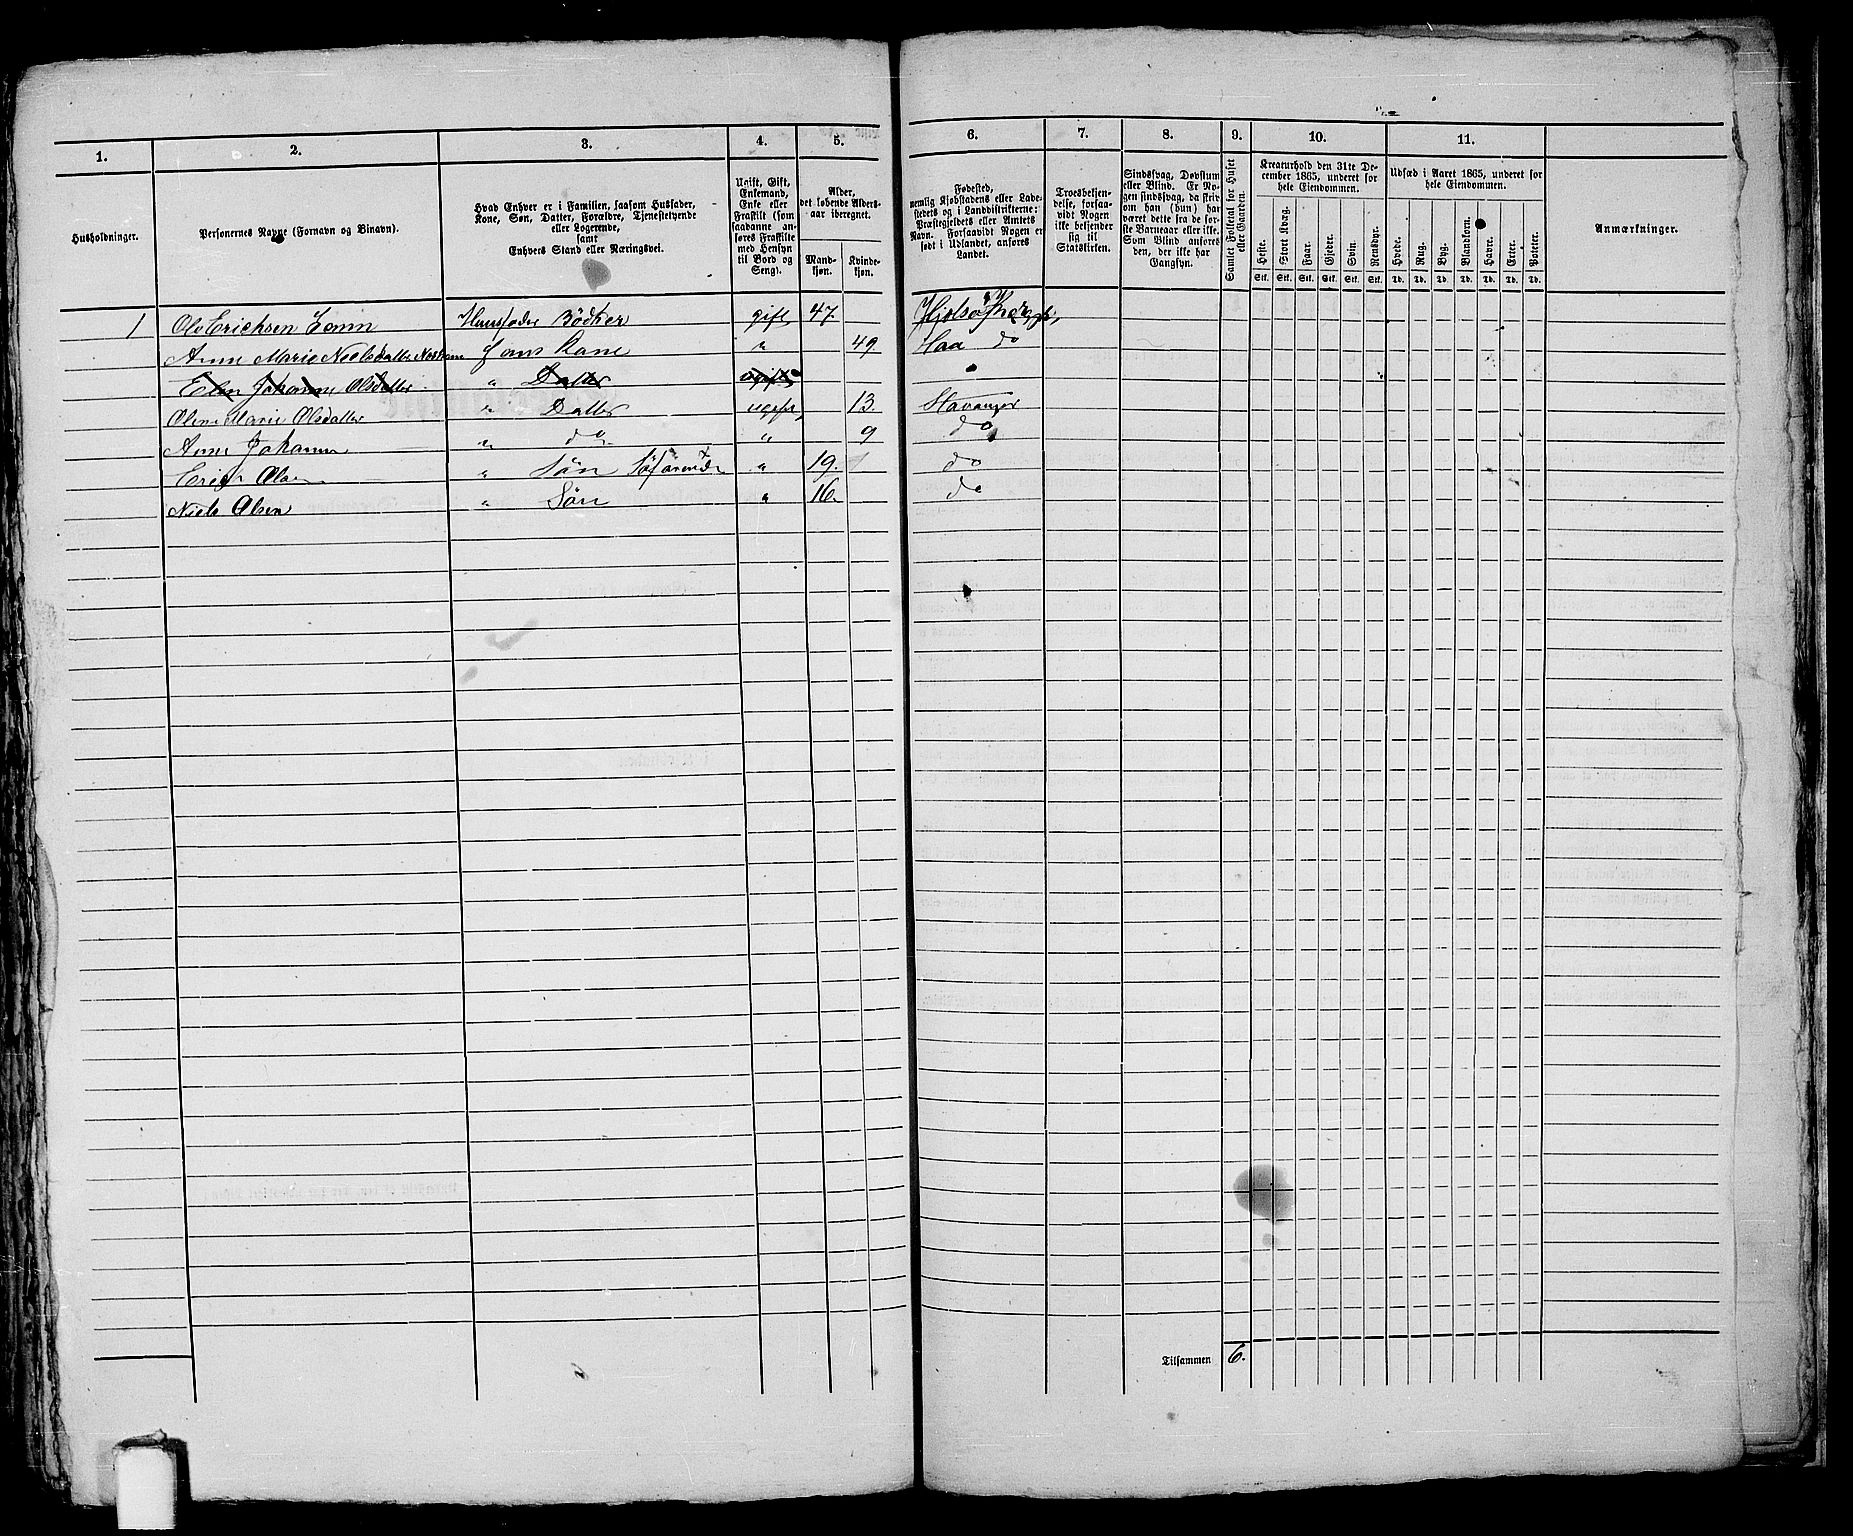 1. 2. 3. 4. 5. 6. 7. 8. 9. 10. 11.
Husholdninger.
Personernes Navne (Fornavn og Binavn).
Hvad Enhver er i Familien, saasom Husfader,
Kone, Søn, Datter, Forældre, Tjenestetyende
eller Logerende,
samt
Enhvers Stand eller Næringsvei.
Ugift, Gift,
Enkemand,
Enke eller
Fraskilt (som
saadanne an-
føres Fraskilte
med Hensyn
til Bord og
Seng).
Alder,
det løbende Alders-
aar iberegnet.
Mand-
kjøn.
Kvinde-
kjøn.
Fødested,
nemlig Kjøbstadens eller Lade-
stedets og i Landdistrikterne:
Præstegjeldets eller Amtets
Navn. Forsaavidt Nogen er
født i Udlandet, anføres
Landet.
Troesbekjen-
delse, forsaa-
vidt Nogen
ikke bekjender
sig til
Statskirken.
Sindssvag, Døvstum
eller Blind. Er No-
gen sindssvag, da skriv
om han (hun) har
været dette fra de før-
ste Barneaar eller ikke.
Som Blind anføres
den, der ikke har
Gangsyn.
Samlet Folketal for Huset
eller Gaarden.
Kreaturhold den 31te De-
cember 1865, underet for
hele Eiendommen.
Heste. Stort Kvæg. Faar. Gjeder. Svin. Rensdyr.
Stk. Stk. Stk. Stk. Stk. Stk.
Udsæd i Aaret 1865, underet for
hele Eiendommen.
Hvede. Rug. Byg. Blandkorn. Havre. Erter. Poteter.
Td. Td. Td. Td. Td. Td. Td.
Anmærkninger.
1 Ole Erichsen Husfader Bödker gift 47.
Anne Marie Nielsdatter hans Kone " 49. Haa do
Elen Johanne Olsdatter " Datter ugift
Oline Marie Olsdatter " Datter ugift 13. Stavanger
Anne Johanne " do " 9 do
Erich Olsen " Sön Söfarende " 19. do
Niels Olsen " Sön " 16. do
Tilsammen 6.